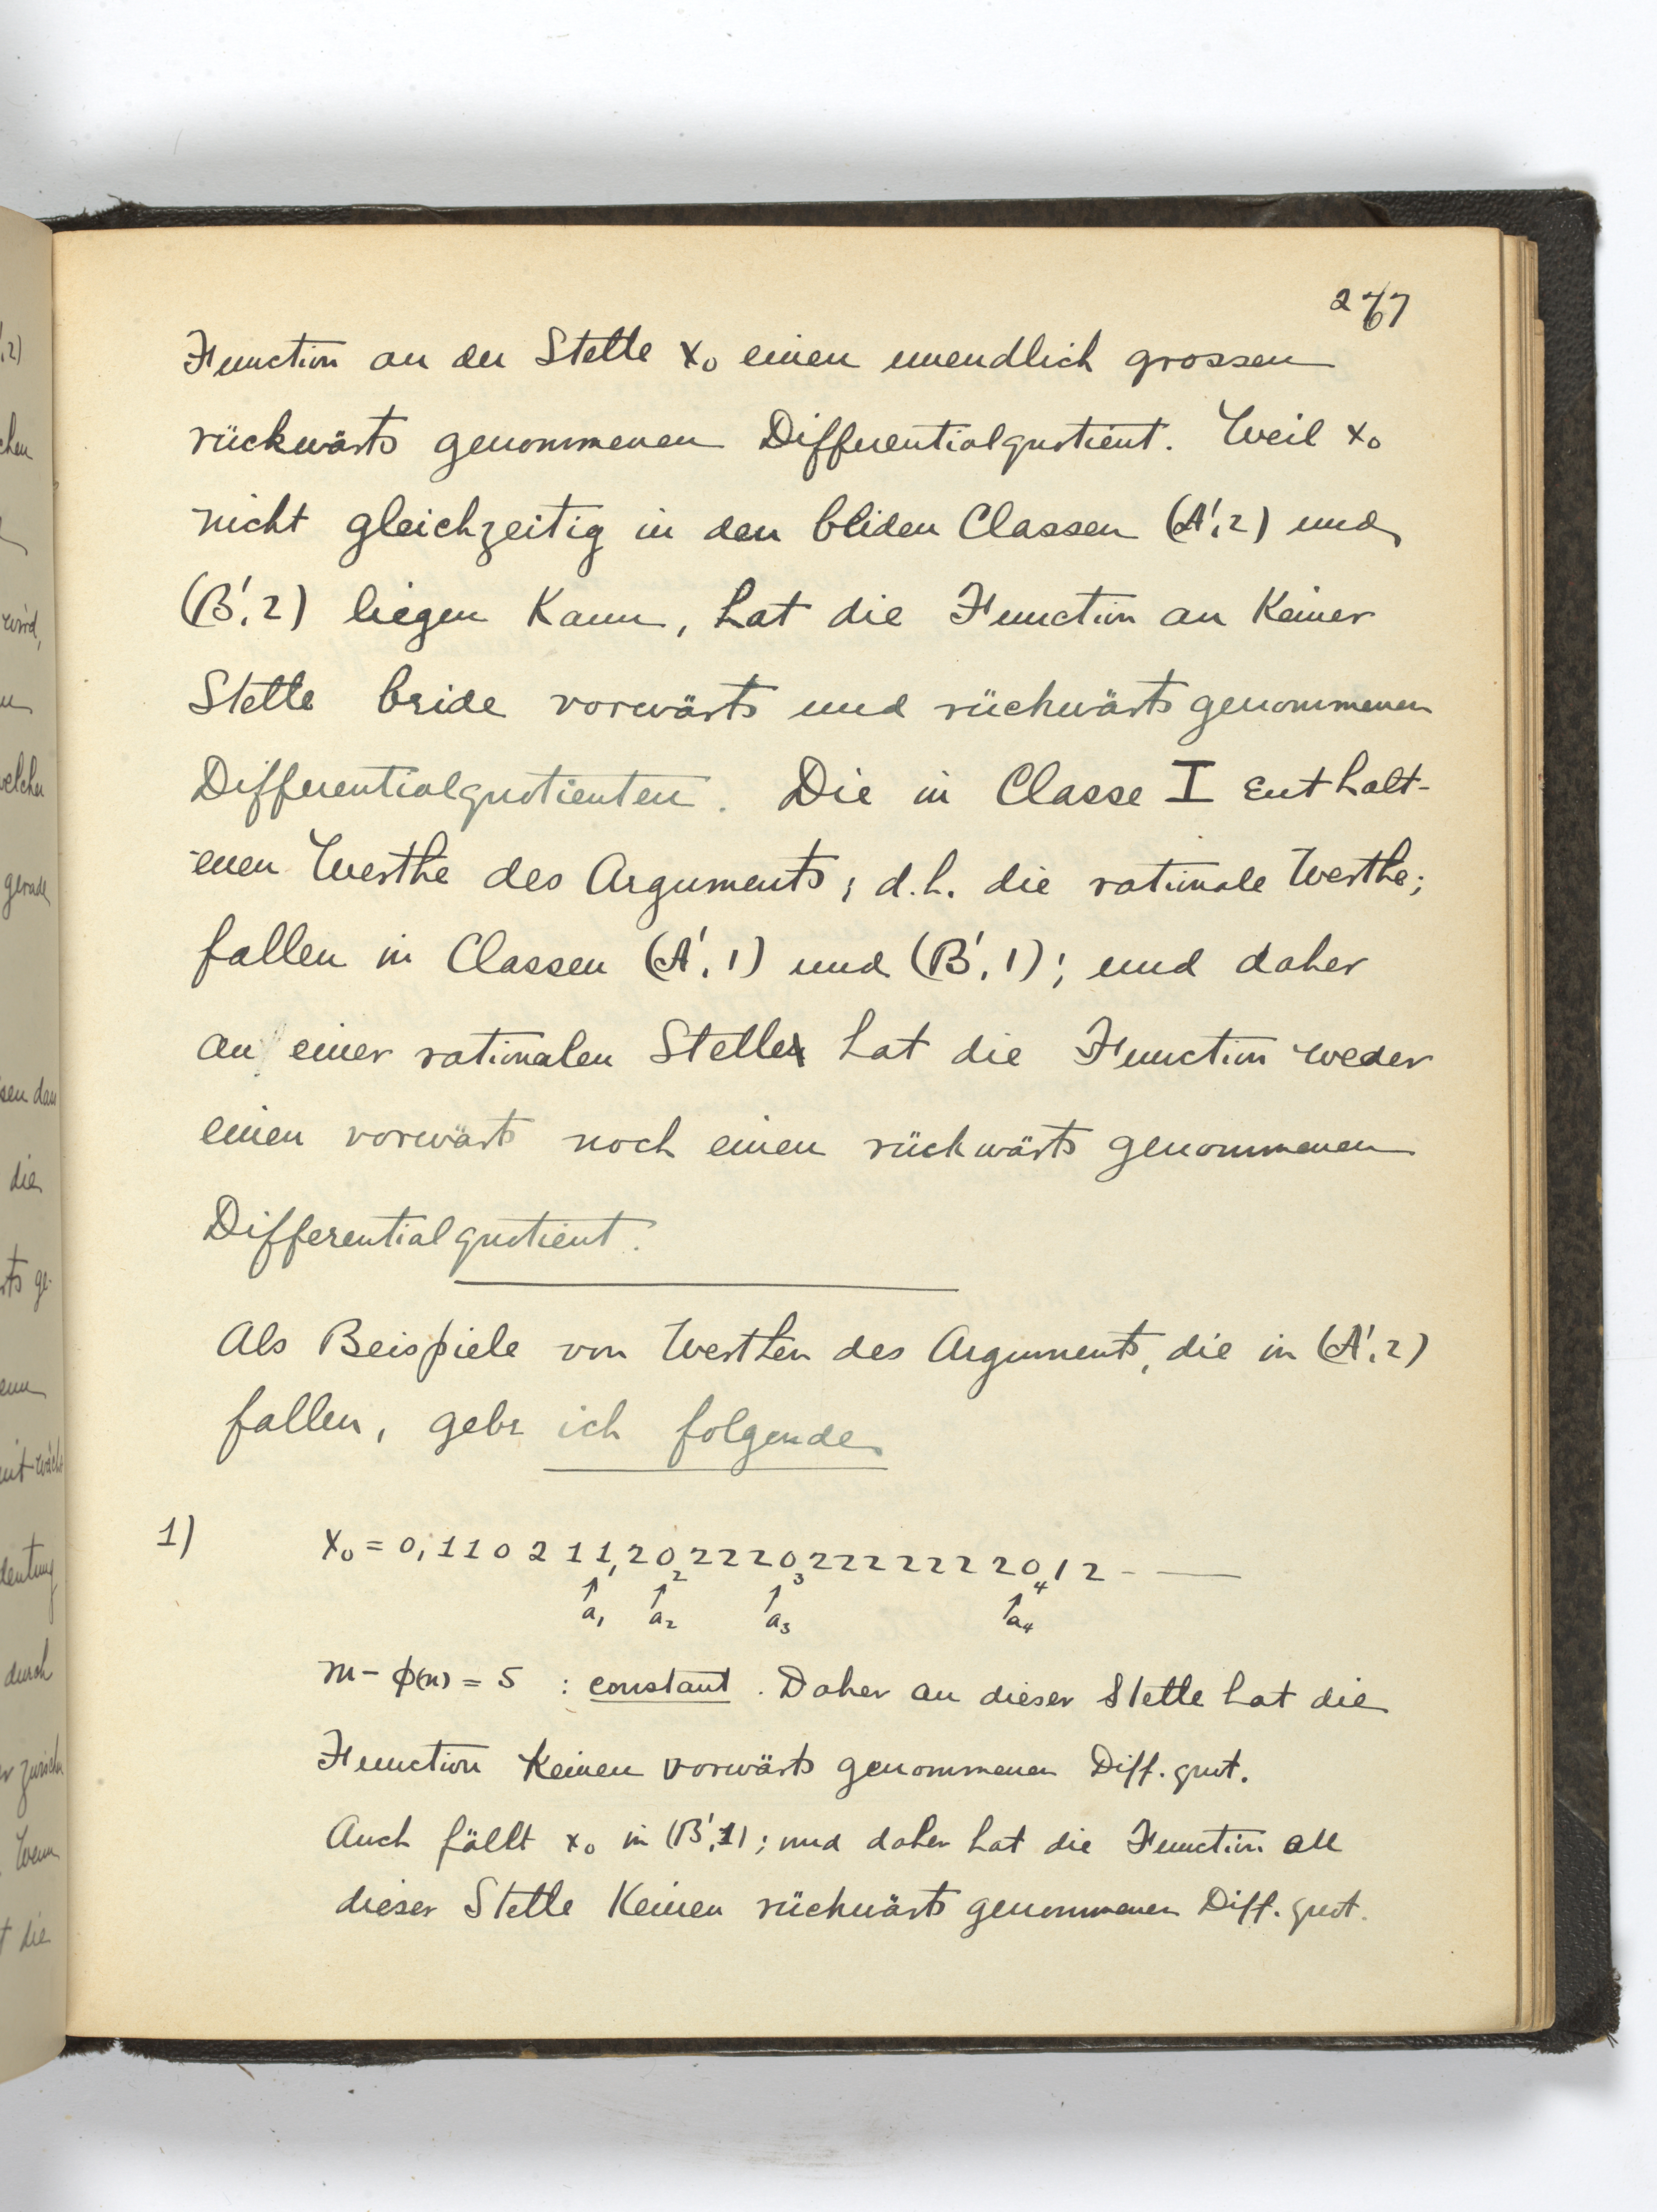 267
Function an der Stelle x₀ einen unendlich grossen
rückwärts genommenen Differentialquotient. Weil x₀
nicht gleichzeitig in den beiden Classen (A',2) und
(B',2) liegen kann, hat die Function an keiner
Stelle beide vorwärts und rückwärts genommenen
Differentialquotienten. Die in Classe I enthalt-
enen Werthe des Arguments, d.h. die rationale Werthe,
fallen in Classen (A',1) und (B',1); und daher
an einer rationalen Stelle hat die Function weder
einen vorwärts noch einen rückwärts genommenen
Differentialquotient.
Als Beispiele von Werthen des Arguments, die in (A',2)
fallen, gebe ich folgende
1) x₀ = 0,1 1 0 2 1 1,2 0 2 2 2 0 2 2 2 2 2 2 2 0 1 2 - —
1 2 3 4
↑ ↑ ↑ ↑
a₁ a₂ a₃ a₄
m - ϕ(n) = 5 : constant. Daher an dieser Stelle hat die
Function keinen vorwärts genommenen Diff. quot.
Auch fällt x₀ in (B',1); und daher hat die Function an
dieser Stelle keinen rückwärts genommenen Diff. quot.
ts ge-
wird,
welcher
gerade
die
durch
t die